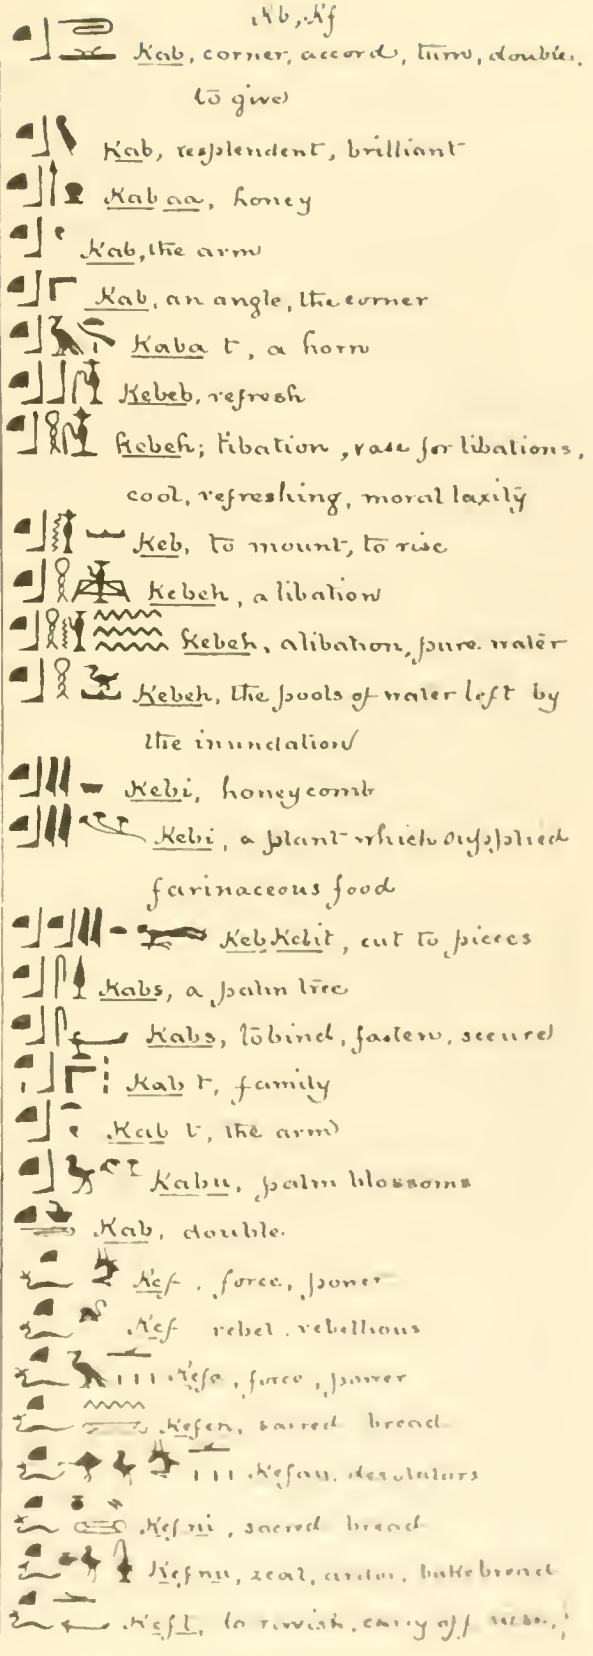 Kb, Kf
Kab, corner, accord, turn, double,
to give
Kab, resplendent, brilliant
Kab aa, honey
Kab, the arm
Kab, an angle, the corner
Kaba t, a horn
Kebeb, refresh
Kebeh; libation, vase for libations,
cool, refreshing, moral laxity
Keb, to mount, to rise
Kebeh, a libation
Kebeh, a libation, pure water
Kebeh, the pools of water left by
the inundation
Kebi, honeycomb
Kebi, a plant which supplied
farinaceous food
KebKebit, cut to pieces
Kabs, a palm tree
Kabs, to bind, fasten, secure
Kab t, family
Kab t, the arm
Kabu, palm blossoms
Kab, double.
Kef, force, power
Kef rebel, rebellious
Kefa, force, power
Kefen, sacred bread
Kefau, desolators
Kefni, sacred bread
Kefnu, zeal, ardor, bake bread
Keft, to ravish, carry off